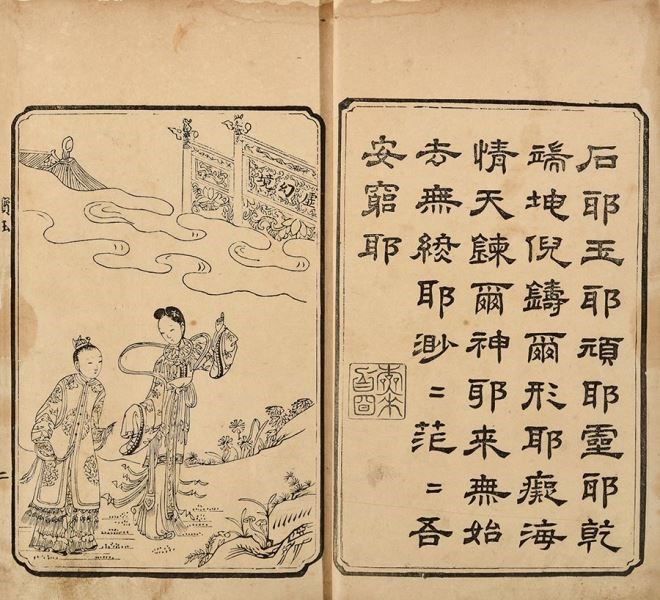 石耶玉耶頑耶靈耶乾
端坤倪鑄爾形耶癡海
情天鍊爾神耶來無始
去無終耶渺〻茫〻吾
安窮耶
虛幻境
寶玉
二